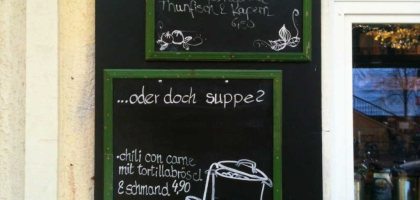 Thunfisch & Kapern
4,50
...oder doch suppe?
-chili con carne
mit tortillabrösel
& schmand 4,90